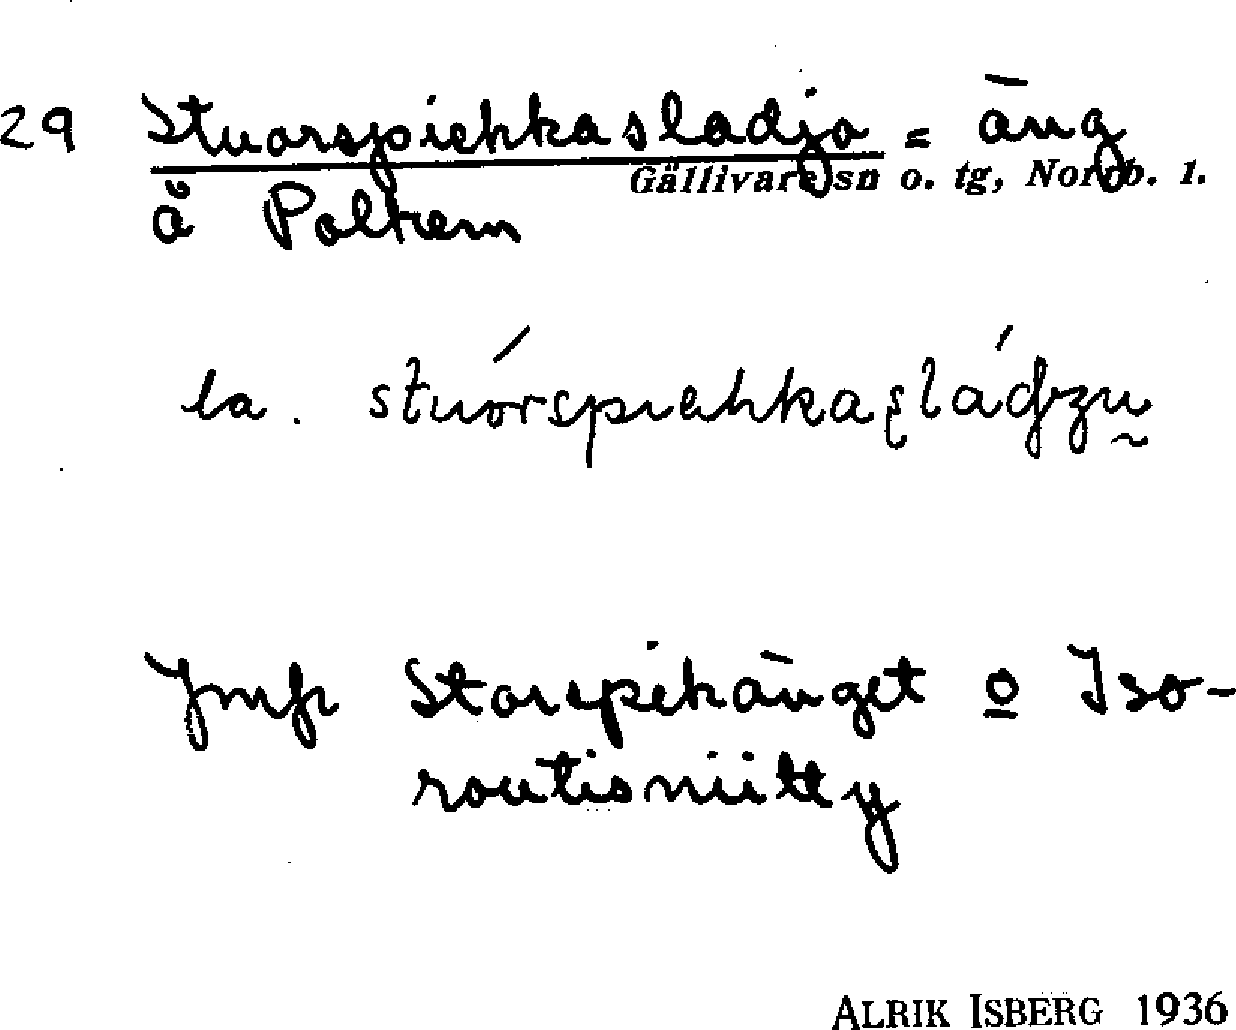 29 Stuorspiehkasladjo = äng
Gällivare sn o. tg, Norrb. l.
å Polkem
la. stuórspıehkaslá
Jmfr Storspikänget o Iso-
routioniitty
ALRIK ISBERG 1936